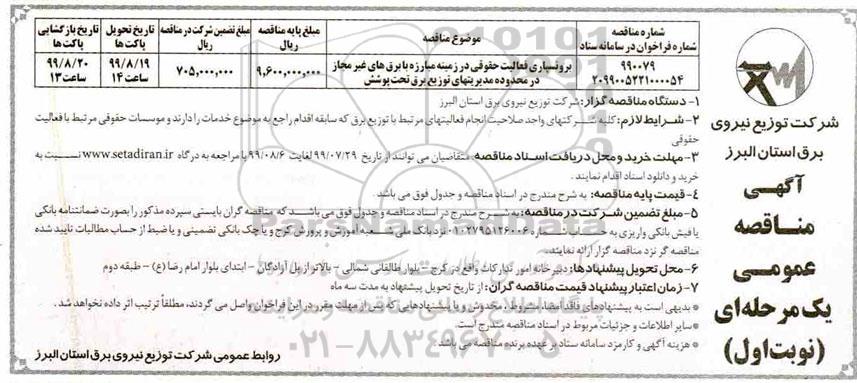 شرکت توزیع نیروی
برق استان البرز
آگهی
مناقصه
عمومی
یک مرحله‌ای
(نوبت اول)
شماره مناقصه
شماره فراخوان در سامانه ستاد
موضوع مناقصه
مبلغ پایه مناقصه
ریال
مبلغ تضمین شرکت در مناقصه
ریال
تاریخ تحویل
پاکت‌ها
تاریخ بازگشایی
پاکت‌ها
۹۹۰۰۷۹
۲۰۹۹۰۰۵۲۲۱۰۰۰۰۵۴
برونسپاری فعالیت حقوقی در زمینه مبارزه با برق های غیر مجاز
در محدوده مدیریتهای توزیع برق تحت پوشش
۹,۶۰۰,۰۰۰,۰۰۰
۷۰۵,۰۰۰,۰۰۰
۹۹/۸/۱۹
ساعت ۱۴
۹۹/۸/۲۰
ساعت ۱۳
۱- دستگاه مناقصه گزار: شرکت توزیع نیروی برق استان البرز
۲- شرایط لازم: کلیه شرکتهای واجد صلاحیت انجام فعالیتهای مرتبط با توزیع برق که سابقه اقدام راجع به موضوع خدمات را دارند و موسسات حقوقی مرتبط با فعالیت
حقوقی
۳- مهلت خرید و محل دریافت اسناد مناقصه: متقاضیان می توانند از تاریخ ۹۹/۰۷/۲۹ لغایت ۹۹/۰۸/۶ با مراجعه به درگاه www.setadiran.ir نسبت به
خرید و دانلود اسناد اقدام نمایند.
۴- قیمت پایه مناقصه: به شرح مندرج در اسناد مناقصه و جدول فوق می باشد.
۵- مبلغ تضمین شرکت در مناقصه: به شرح مندرج در اسناد مناقصه و جدول فوق می باشند که مناقصه گران بایستی سپرده مذکور را بصورت ضمانتنامه بانکی
یا فیش بانکی واریزی به حساب شماره ۰۱۰۲۷۹۵۱۲۶۰۰۶ نزد بانک ملی شعبه آموزش و پرورش کرج و یا چک بانکی تضمینی و یا ضبط از حساب مطالبات تایید شده
مناقصه گر نزد مناقصه گزار ارائه نمایند.
۶- محل تحویل پیشنهادها: دبیرخانه امور تدارکات واقع در کرج - بلوار طالقانی شمالی - بالاتر از پل آزادگان - ابتدای بلوار امام رضا (ع) - طبقه دوم
۷- زمان اعتبار پیشنهاد قیمت مناقصه گران: از تاریخ تحویل پیشنهاد به مدت سه ماه
* بدیهی است به پیشنهادهای فاقد امضا، مشروط، مخدوش و یا پیشنهادهایی که پس از مهلت مقرر در این فراخوان واصل می گردند، مطلقاً ترتیب اثر داده نخواهد شد.
* سایر اطلاعات و جزئیات مربوط در اسناد مناقصه مندرج است.
* هزینه آگهی و کارمزد سامانه ستاد بر عهده برنده مناقصه می باشد.
روابط عمومی شرکت توزیع نیروی برق استان البرز
۰۲۱-۸۸۳۴۹۶۷۰-۵